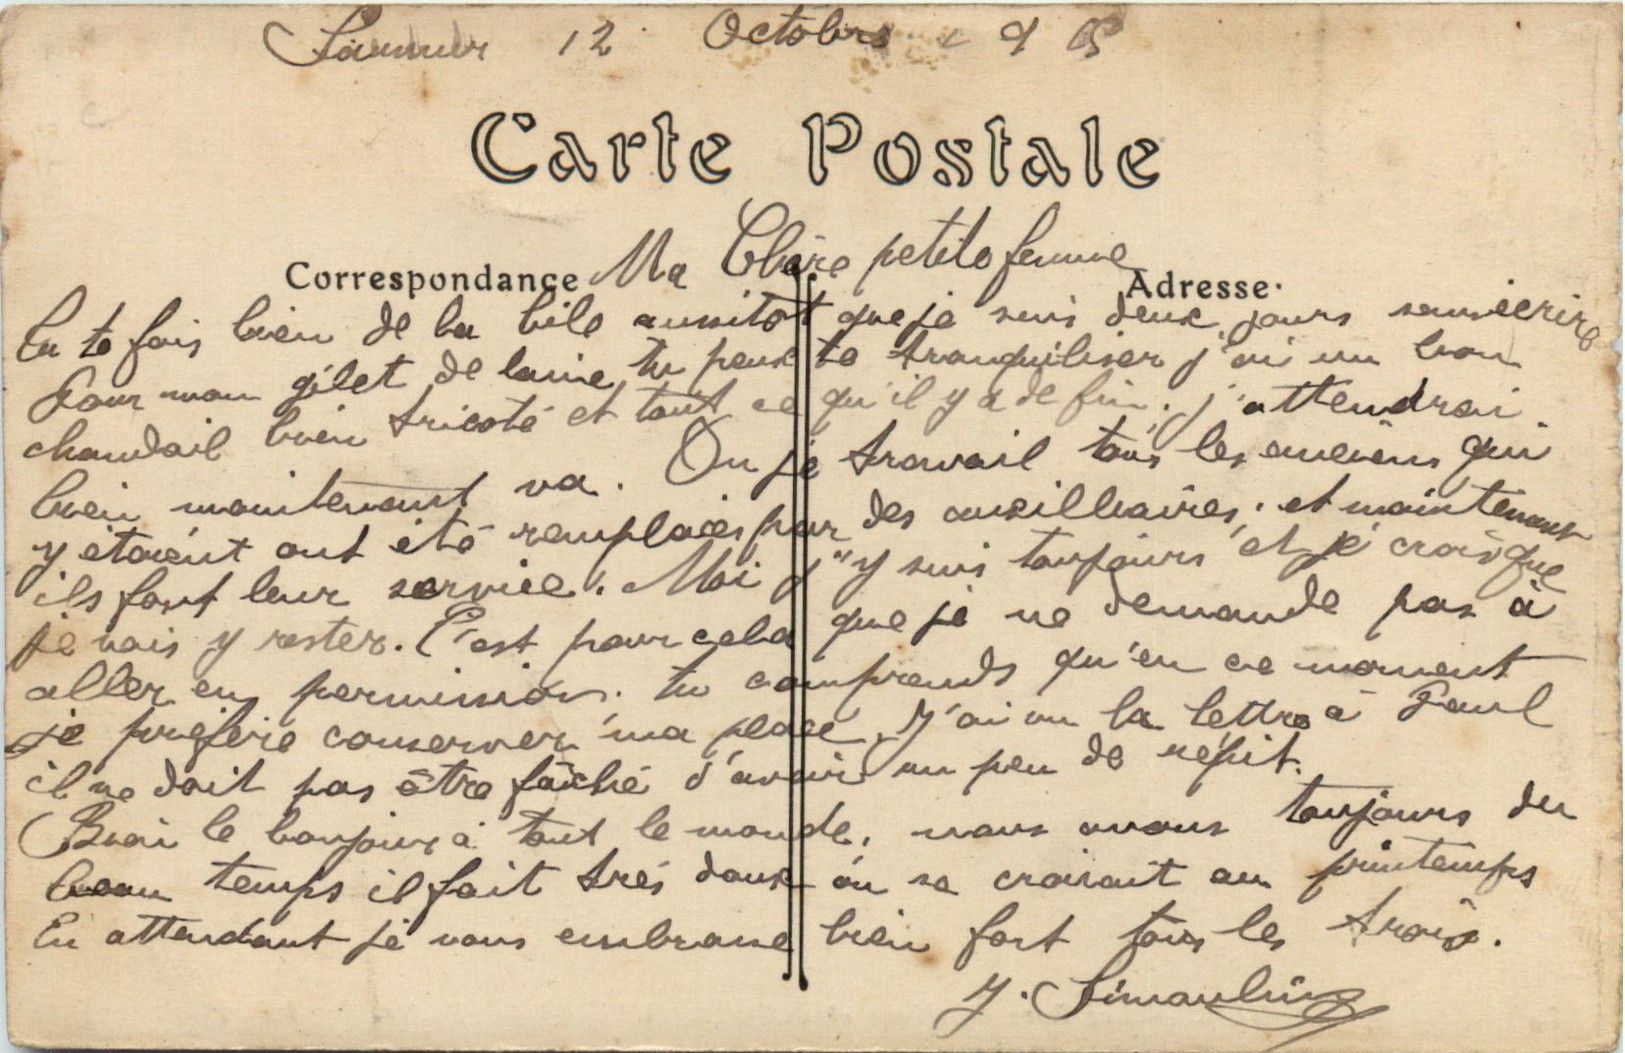 Saumur 12 Octobre 1915
Carte Postale
Correspondance
Adresse
Ma Chère petite femme
Tu te fais bien de la bile aussitôt que je suis deux jours sans écrire
Pour mon gilet de laine tu peux te tranquiliser j'ai un bon
chandail bien tricoté et tout ce qu'il y a de fin. j'attendrai
bien maintenant va. Ou je travail tous les anciens qui
y étaient ont été remplacés par des auxilliaires. et maintenant
ils font leur service. Moi j'y suis toujours et je crois que
je vais y rester. C'est pour cela que je ne demande pas à
aller en permission. tu comprends qu'en ce moment
je préfère conserver ma place. J'ai vu la lettre à Paul
il ne doit pas être fâché d'avoir un peu de répit.
le bonjour à tout le monde, nous avons toujours du
beau temps il fait trés doux on se croirait au printemps
En attendant je vous embrasse bien fort tous les trois.